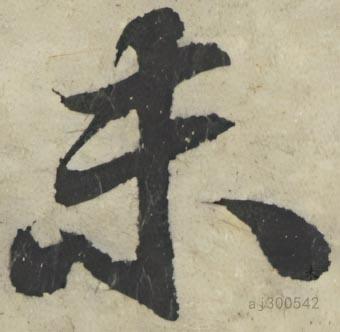 未
aj300542